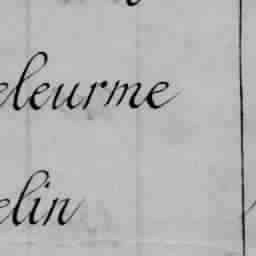 eleurme
elin